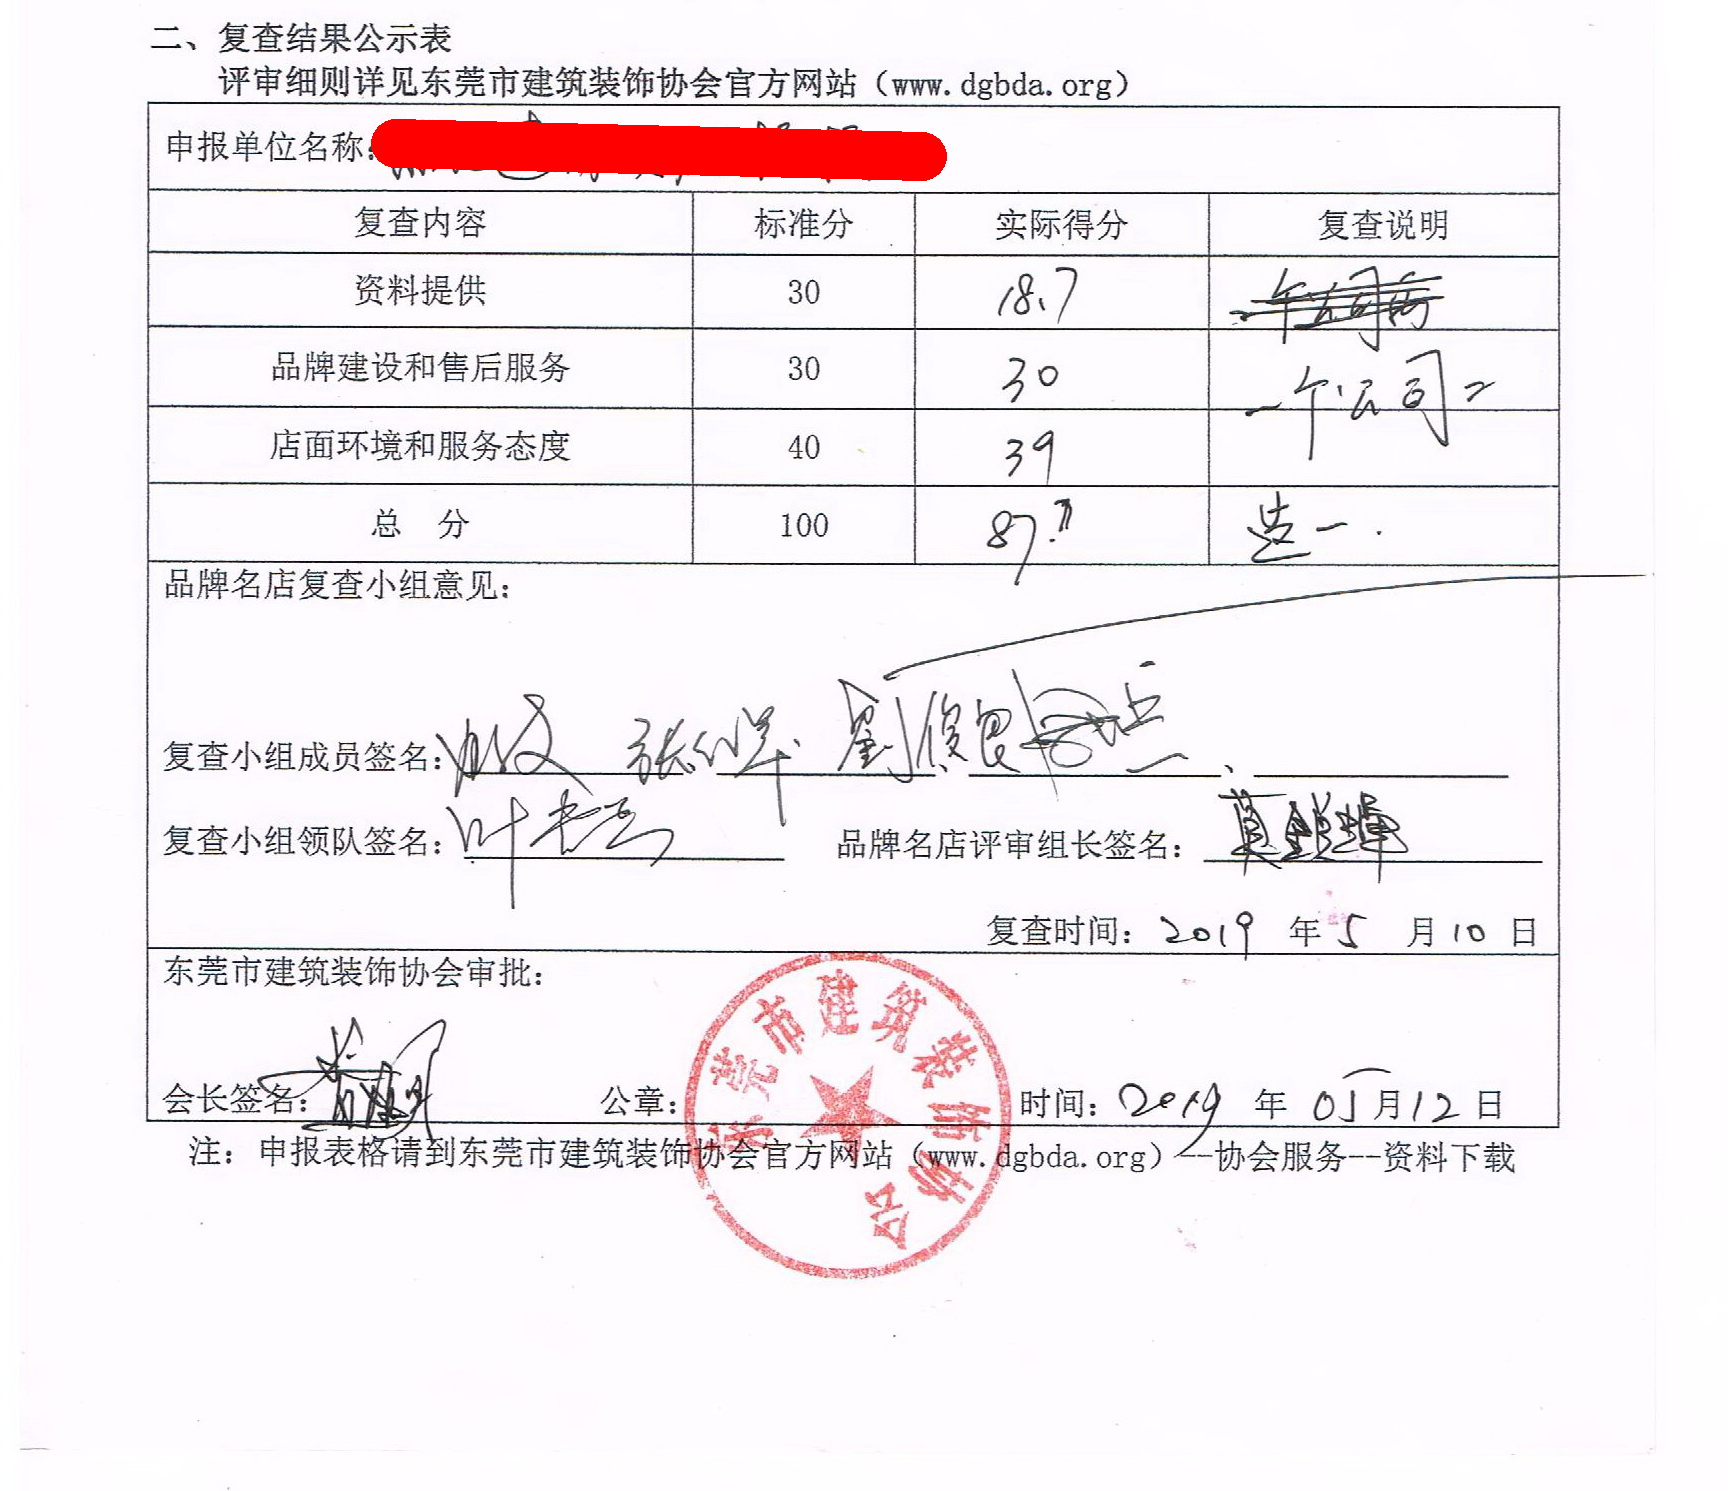 二、复查结果公示表
评审细则详见东莞市建筑装饰协会官方网站（www.dgbda.org）
申报单位名称：
复查内容 标准分 实际得分 复查说明
资料提供 30 18.7
品牌建设和售后服务 30 30 一个公司
店面环境和服务态度 40 39
总 分 100 87.7 选一.
品牌名店复查小组意见：
复查小组成员签名： 劉俊良
复查小组领队签名：叶 品牌名店评审组长签名：
复查时间：2019 年 5 月 10 日
东莞市建筑装饰协会审批：
会长签名： 公章： 时间：2019 年 05 月 12 日
东莞市建筑装饰协会
注：申报表格请到东莞市建筑装饰协会官方网站（www.dgbda.org）--协会服务--资料下载